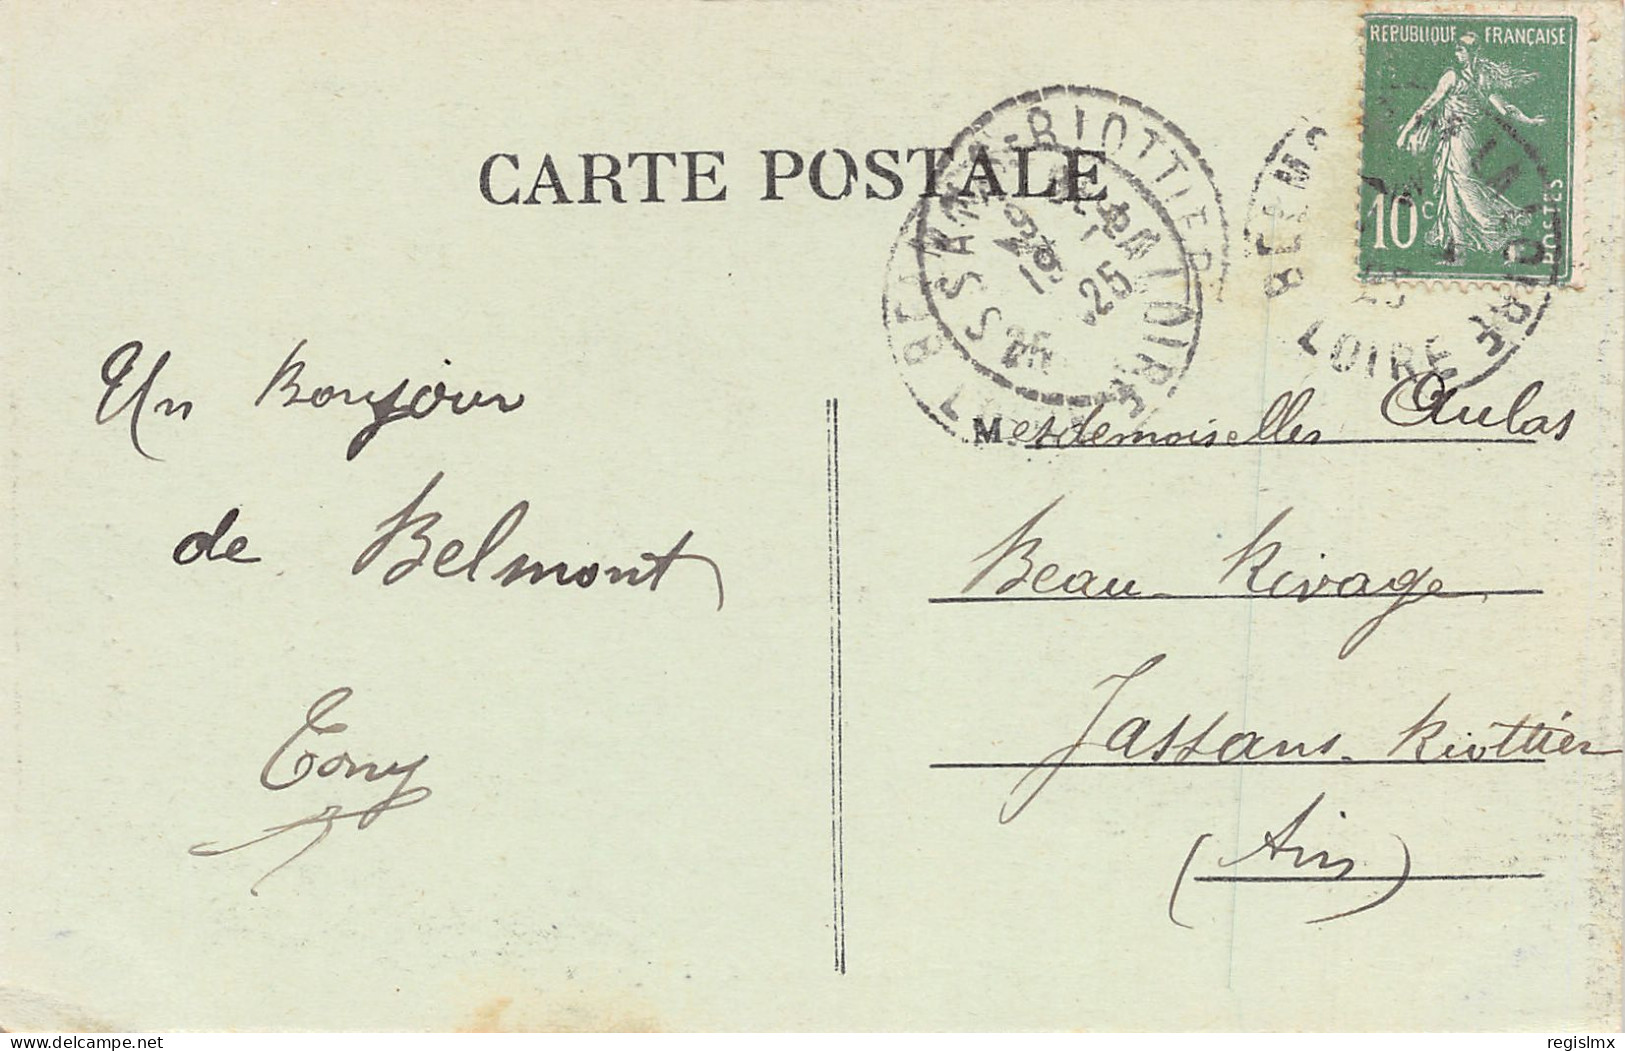 REPUBLIQUE FRANÇAISE
10c
POSTES
CARTE POSTALE
JASSANS-RIOTTIER
25
BELMONT DE LA LOIRE
LOIRE
Un Bonjour
de Belmont
Tony
Mesdemoiselles Aulas
Beau-Rivage
Jassans-Riottier
(Ain)
delcampe.net
regislmx